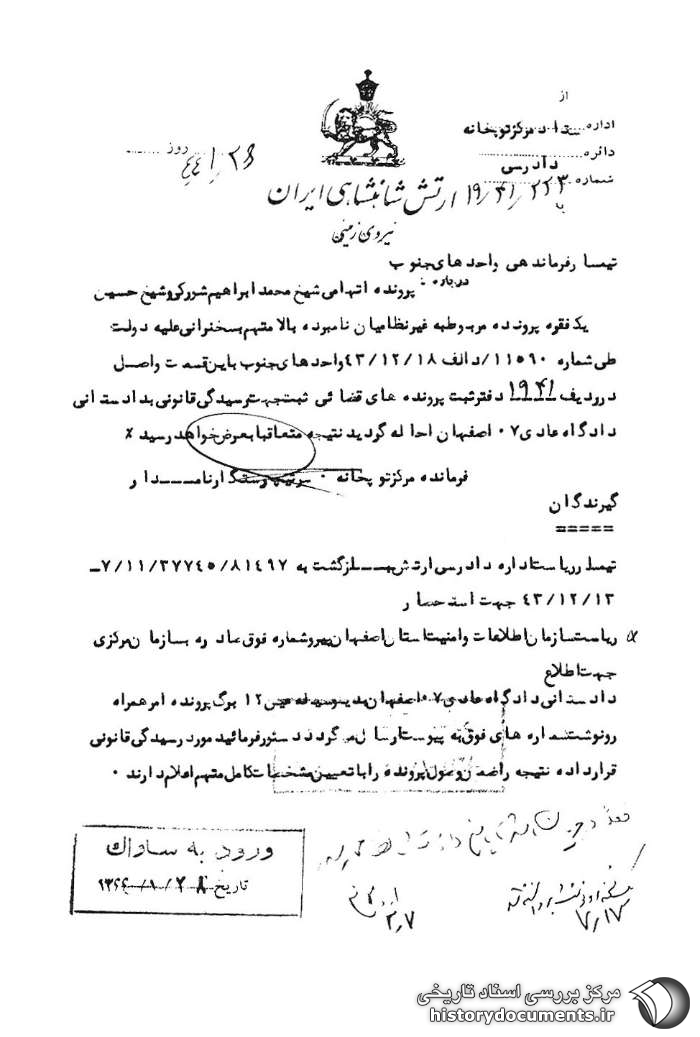 از
اداره ستاد مرکز توپخانه
دائره دادرسی
شماره ۱۹/۴۱/۲۲۳
روز ۴۴/۱/۲۶
ارتش شاهنشاهی ایران
نیروی زمینی
تیمسار فرماندهی واحدهای جنوب
درباره : پرونده اتهامی شیخ محمد ابراهیم شورکی و شیخ حسین
یک فقره پرونده مربوط به غیرنظامیان نامبرده بالا متهم بسخنرانی علیه دولت
طی شماره ۱۱۵۹۰/د الف ۴۳/۱۲/۱۸ واحدهای جنوب باین قسمت واصل
در ردیف ۱۹۴۱ دفتر ثبت پرونده های قضائی ثبت جهت رسیدگی قانونی بدادستانی
دادگاه عادی ۰۷ اصفهان احاله گردید نتیجه متعاقبا بعرض خواهد رسید ٪
فرمانده مرکز توپخانه ۰ سرتیپ
گیرندگان
=====
تیمسار ریاست اداره دادرسی ارتش بازگشت به ۷/۱۱/۳۷۷۴۵/۸۱۴۹۷ــ
۴۳/۱۲/۱۳ جهت استحضار
ریاست سازمان اطلاعات و امنیت استان اصفهان پیرو شماره فوق صادره بسازمان مرکزی
جهت اطلاع
دادستانی دادگاه عادی ۰۷ اصفهان بدینوسیله عین ۱۲ برگ پرونده امر همراه
رونوشت شماره های فوق به پیوست ارسال میگردد دستور فرمائید مورد رسیدگی قانونی
قرار داده نتیجه را ضمن وصول پرونده را با تعیین مشخصات کامل متهم اعلام دارند ۰
ورود به ساواک
تاریخ ۱۳۴۴/۱/۲۸
۷/۱۷
۲/۷
مرکز بررسی اسناد تاریخی
historydocuments.ir